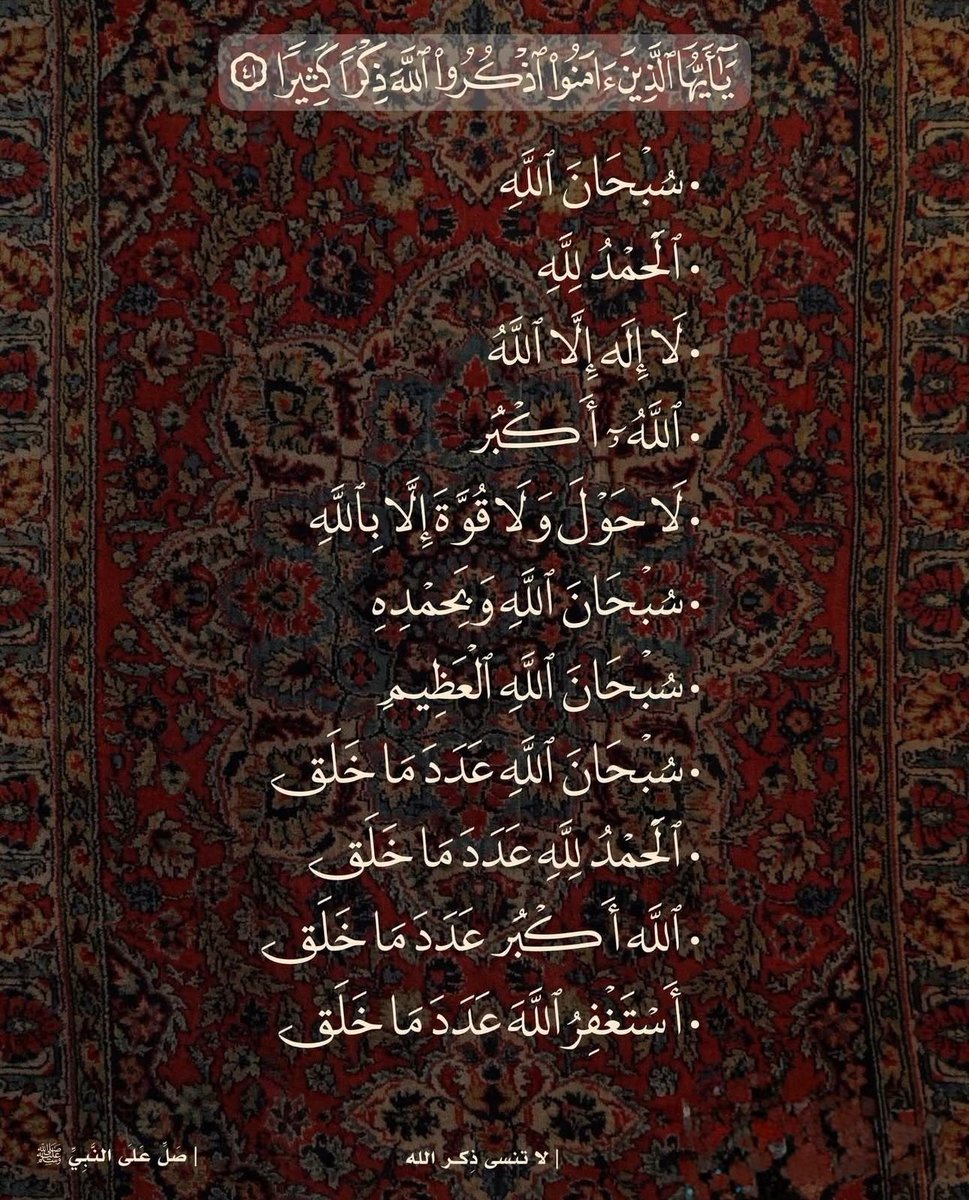 يَـٰٓأَيُّهَا ٱلَّذِينَ ءَامَنُوا۟ ٱذْكُرُوا۟ ٱللَّهَ ذِكْرًا كَثِيرًا ٤١
• سُبْحَانَ ٱللَّهِ
• ٱلْحَمْدُ لِلَّهِ
• لَا إِلَه إِلَّا ٱللَّهُ
• ٱللَّهُ أَكْبُر
• لَا حَوْلَ وَلَا قُوَّةَ إِلَّا بِٱللَّهِ
• سُبْحَانَ ٱللَّهِ وَبِحَمْدِهِ
• سُبْحَانَ ٱللَّهِ ٱلْعَظِيمِ
• سُبْحَانَ ٱللَّهِ عَدَدَ مَا خَلَق
• ٱلْحَمْدُ لِلَّهِ عَدَدَ مَا خَلَق
• ٱللَّه أَكْبُر عَدَدَ مَا خَلَق
• أَسْتَغْفِرُ ٱللَّهَ عَدَدَ مَا خَلَق
| لا تنسى ذِكر الله
| صَلِّ عَلَى النَّبِيِّ ﷺ